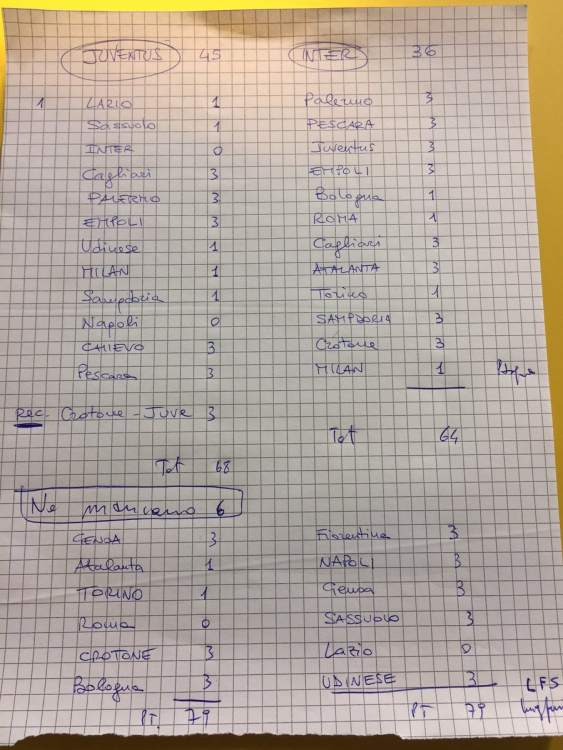 JUVENTUS 45 INTER 36
1 LAZIO 1 Palermo 3
Sassuolo 1 PESCARA 3
INTER 0 Juventus 3
Cagliari 3 EMPOLI 3
PALERMO 3 Bologna 1
EMPOLI 3 ROMA 1
Udinese 1 Cagliari 3
MILAN 1 ATALANTA 3
Sampdoria 1 Torino 1
Napoli 0 SAMPDORIA 3
CHIEVO 3 Crotone 3
Pescara 3 MILAN 1
REC. Crotone - JUVE 3
Tot 64
Tot 68
Ne mancano 6
GENOA 3 Fiorentina 3
Atalanta 1 NAPOLI 3
TORINO 1 Genoa 3
Roma 0 SASSUOLO 3
CROTONE 3 Lazio 0
Bologna 3 UDINESE 3 LFS
PT. 79 PT 79